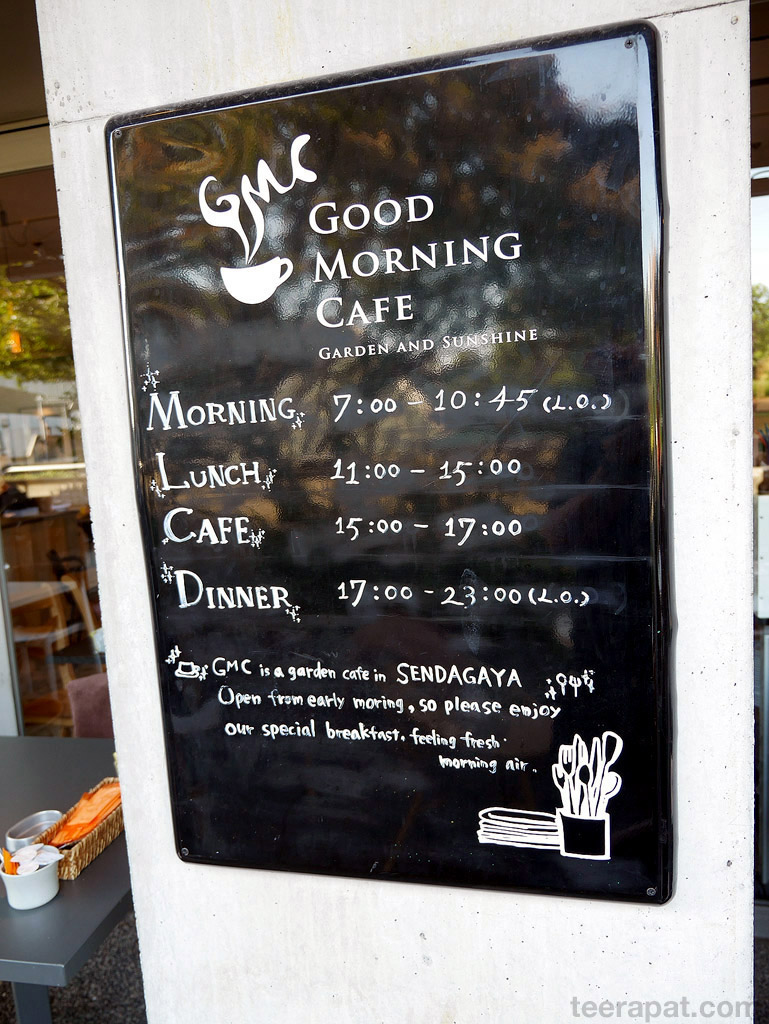 GMC
GOOD
MORNING
CAFE
GARDEN AND SUNSHINE
MORNING 7:00 - 10:45 (L.O.)
LUNCH 11:00 - 15:00
CAFE 15:00 - 17:00
DINNER 17:00 - 23:00 (L.O.)
GMC is a garden cafe in SENDAGAYA
Open from early moring, so please enjoy
our special breakfast. feeling fresh
morning air.
teerapat.com